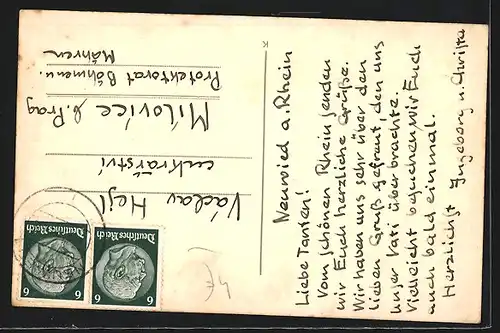 Neuwied a. Rhein
Liebe Tanten!
Vom schönen Rhein senden
wir Euch herzliche Grüße.
Wir haben uns sehr über den
lieben Gruß gefreut, den uns
unser Vati überbrachte.
Vielleicht besuchen wir Euch
auch bald einmal.
Herzlichst Ingeborg u. Christa
Václav Hejl
cukrářství
Milovice b. Prag
Protektorat Böhmen u.
Mähren
Deutsches Reich
6
6
Deutsches Reich
6
6